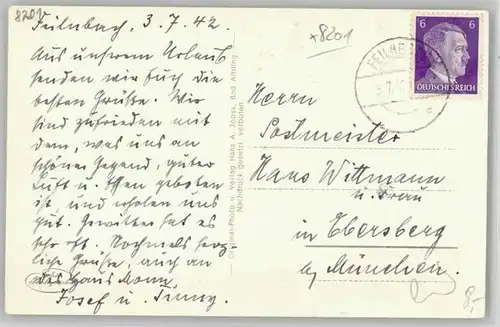 820V
Feilnbach, 3.7.42.
Aus unserem Urlaub
senden wir Euch die
besten Grüße. Wir
sind zufrieden mit
dem, was uns an
schöner Gegend, guter
Luft u. Essen geboten
ist, und erholen uns
gut. Gewitter hat es
sehr oft. Nochmals herz-
liche Grüße, auch an
Josef u.
Original-Photo u. Verlag Hans A. Bad Aibling
Nachdruck gesetzl. verboten.
+8201
FEILNBACH
6 6
DEUTSCHES REICH
Herrn
Postmeister
Hans Wittmann
u. Frau
in Ebersberg
b/ München.
8,-